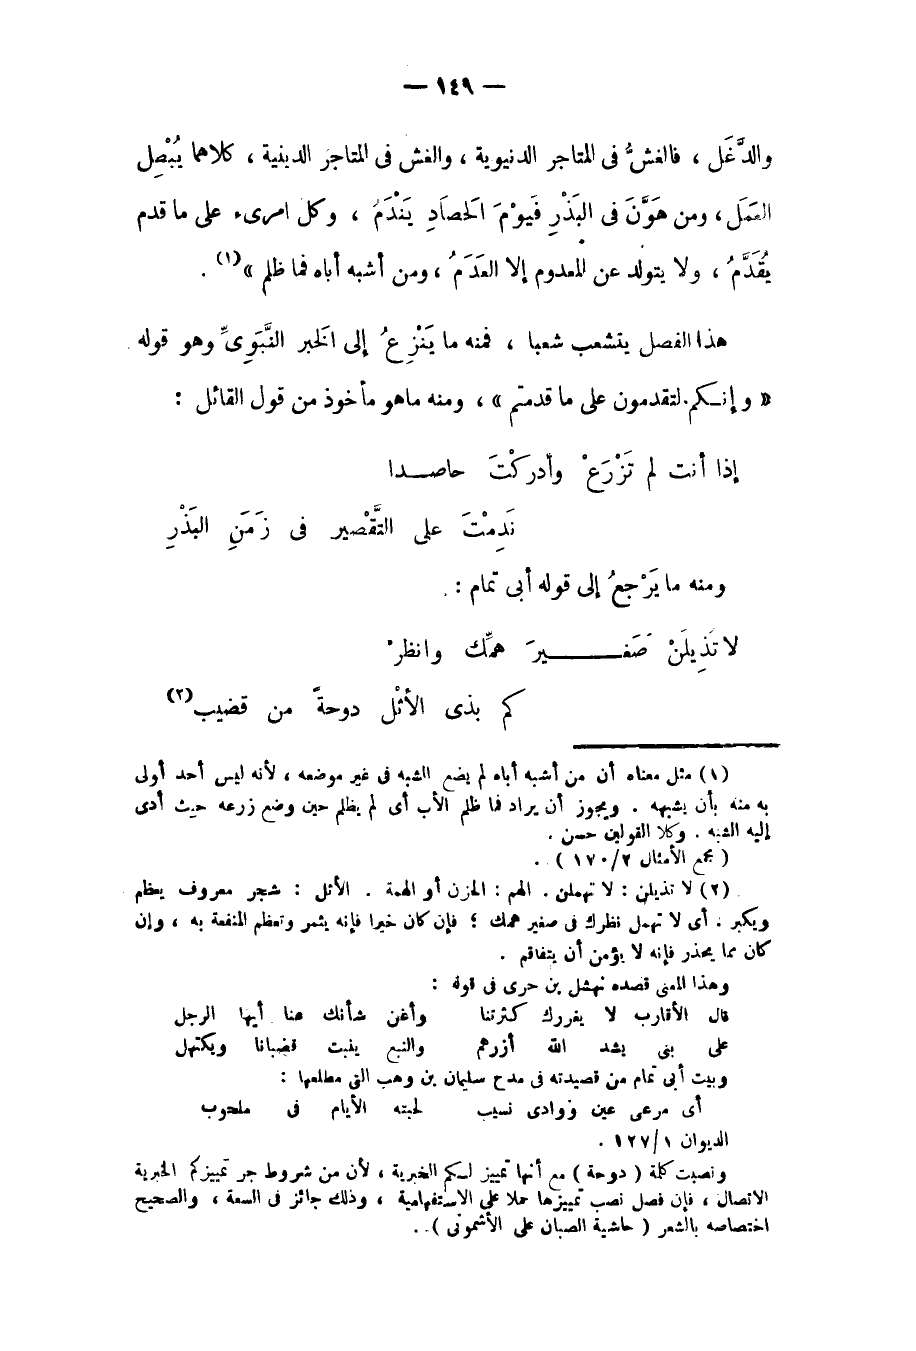 — ١٤٩ —
والدَّغَل ، فالغشُّ فى المتاجر الدنيوية ، والغش فى المتاجر الدينية ، كلاهما يُبْصِل
العَمَل ، ومن هَوَّنَ فى البَذْرِ فَيومْ َ الَحصاَدِ يَنْدَمُ ، وكل امرىء على ما قدم
يُقْدَّمُ ، ولا يتولد عن المعدوم إلا العَدَمُ ، ومن أشبه أباه فما ظلم »(١) .
هذا الفصل يتشعب شعبا ، فمنه ما يَنْزِعُ إلى الَخبر النَّبَوِىِّ وهو قوله
« وإنكم لتقدمون على ما قدمتم » ، ومنه ماهو مأخوذ من قول القائل :
إذا أنت لم تَزْرَعْ وأدركْتَ حاصدا
نَدِمْتَ على التَّقْصير فى زَمَنِ البَذْرِ
ومنه ما يَرْجعُ إلى قوله أبى تمام :
لا تَذِيلَنْ صَغيرَ همِّك وانظرْ
كم بذى الأثْل دوحةً من قضيب(٢)
(١) مثل معناه أن من أشبه أباه لم يضع الشبه فى غير موضعه ، لأنه ليس أحد أولى
به منه بأن يشبهه . ويجوز أن يراد فما ظلم الأب أى لم يظلم حين وضع زرعه حيث أدى
إليه الشبه . وكلا القولين حسن .
( مجمع الأمثال ٢/١٧٠ ) .
(٢) لا تذيلن : لا تهملن . الهم : الحزن أو الهمة . الأثل : شجر معروف يعظم
ويكبر . أى لا تهمل نظرك فى صغير همك ؛ فإن كان خيرا فإنه يثمر وتعظم المنفعة به ، وإن
كان مما يحذر فإنه لا يؤمن أن يتفاقم .
وهذا المعنى قصده نهشل بن حرى فى قوله :
قال الأقارب لا يغررك كثرتنا وأغن شأنك عنا أيها الرجل
على بنى يشد الله أزرهم والنبع ينبت قضبانا ويكتهل
وبيت أبى تمام من قصيدته فى مدح سليمان بن وهب التى مطلعها :
أى مرعى عين ووادى نسيب لحبته الأيام فى ملحوب
الديوان ١/١٢٧ .
ونصبت كلمة ( دوحة ) مع أنها تمييز لكم الخبرية ، لأن من شروط جر تمييزكم الخبرية
الاتصال ، فإن فصل نصب تمييزها حملا على الاستفهامية ، وذلك جائز فى السعة ، والصحيح
اختصاصه بالشعر ( حاشية الصبان على الأشمونى ) .